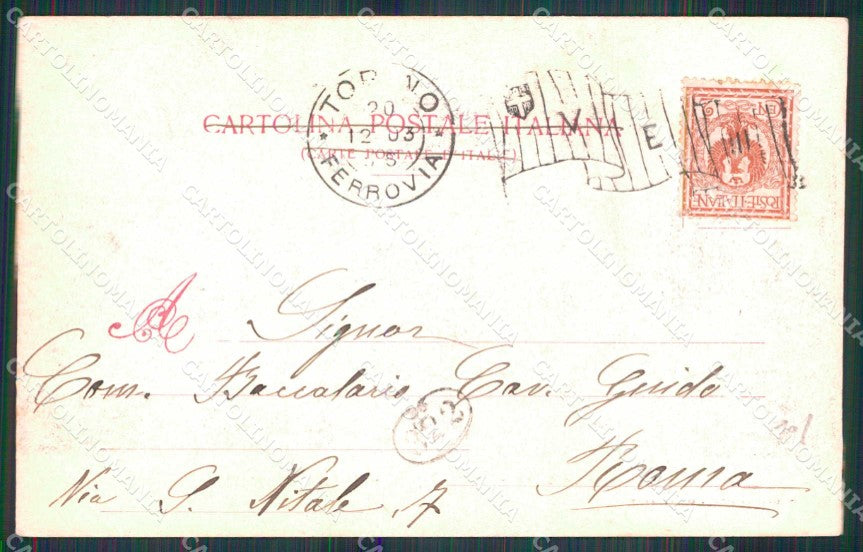 TORINO
20
12 03
FERROVIA
V E III
CENT 2
POSTE ITALIANE
CARTOLINA POSTALE ITALIANA
(CARTE POSTALE D'ITALIE)
A
Signor
Com. Baccalario Cav. Guido
Via S. Vitale, 7 Roma
CARTOLINOMANIA